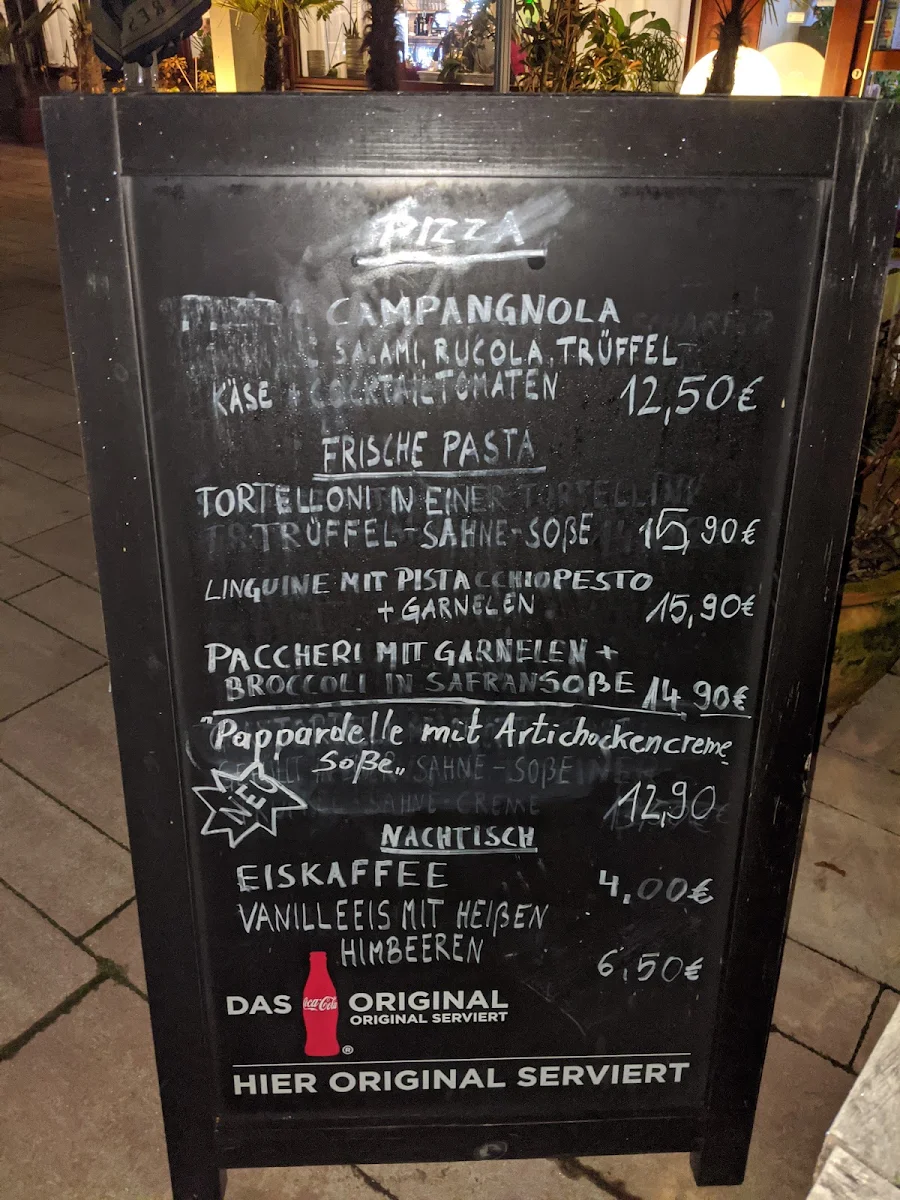 PIZZA
CAMPANGNOLA
SALAMI, RUCOLA, TRÜFFEL
KÄSE + COCKTAILTOMATEN 12,50€
FRISCHE PASTA
TORTELLONI IN EINER
TRÜFFEL-SAHNE-SOßE 15,90€
LINGUINE MIT PISTACCHIOPESTO
+ GARNELEN 15,90€
PACCHERI MIT GARNELEN +
BROCCOLI IN SAFRANSOßE 14,90€
"Pappardelle mit Artichockencreme
Soße„ SAHNE-SOßE
NEU SAHNE-CREME 12,90
NACHTISCH
EISKAFFEE 4,00€
VANILLEEIS MIT HEIßEN
HIMBEEREN 6,50€
DAS Coca-Cola ® ORIGINAL
ORIGINAL SERVIERT
HIER ORIGINAL SERVIERT